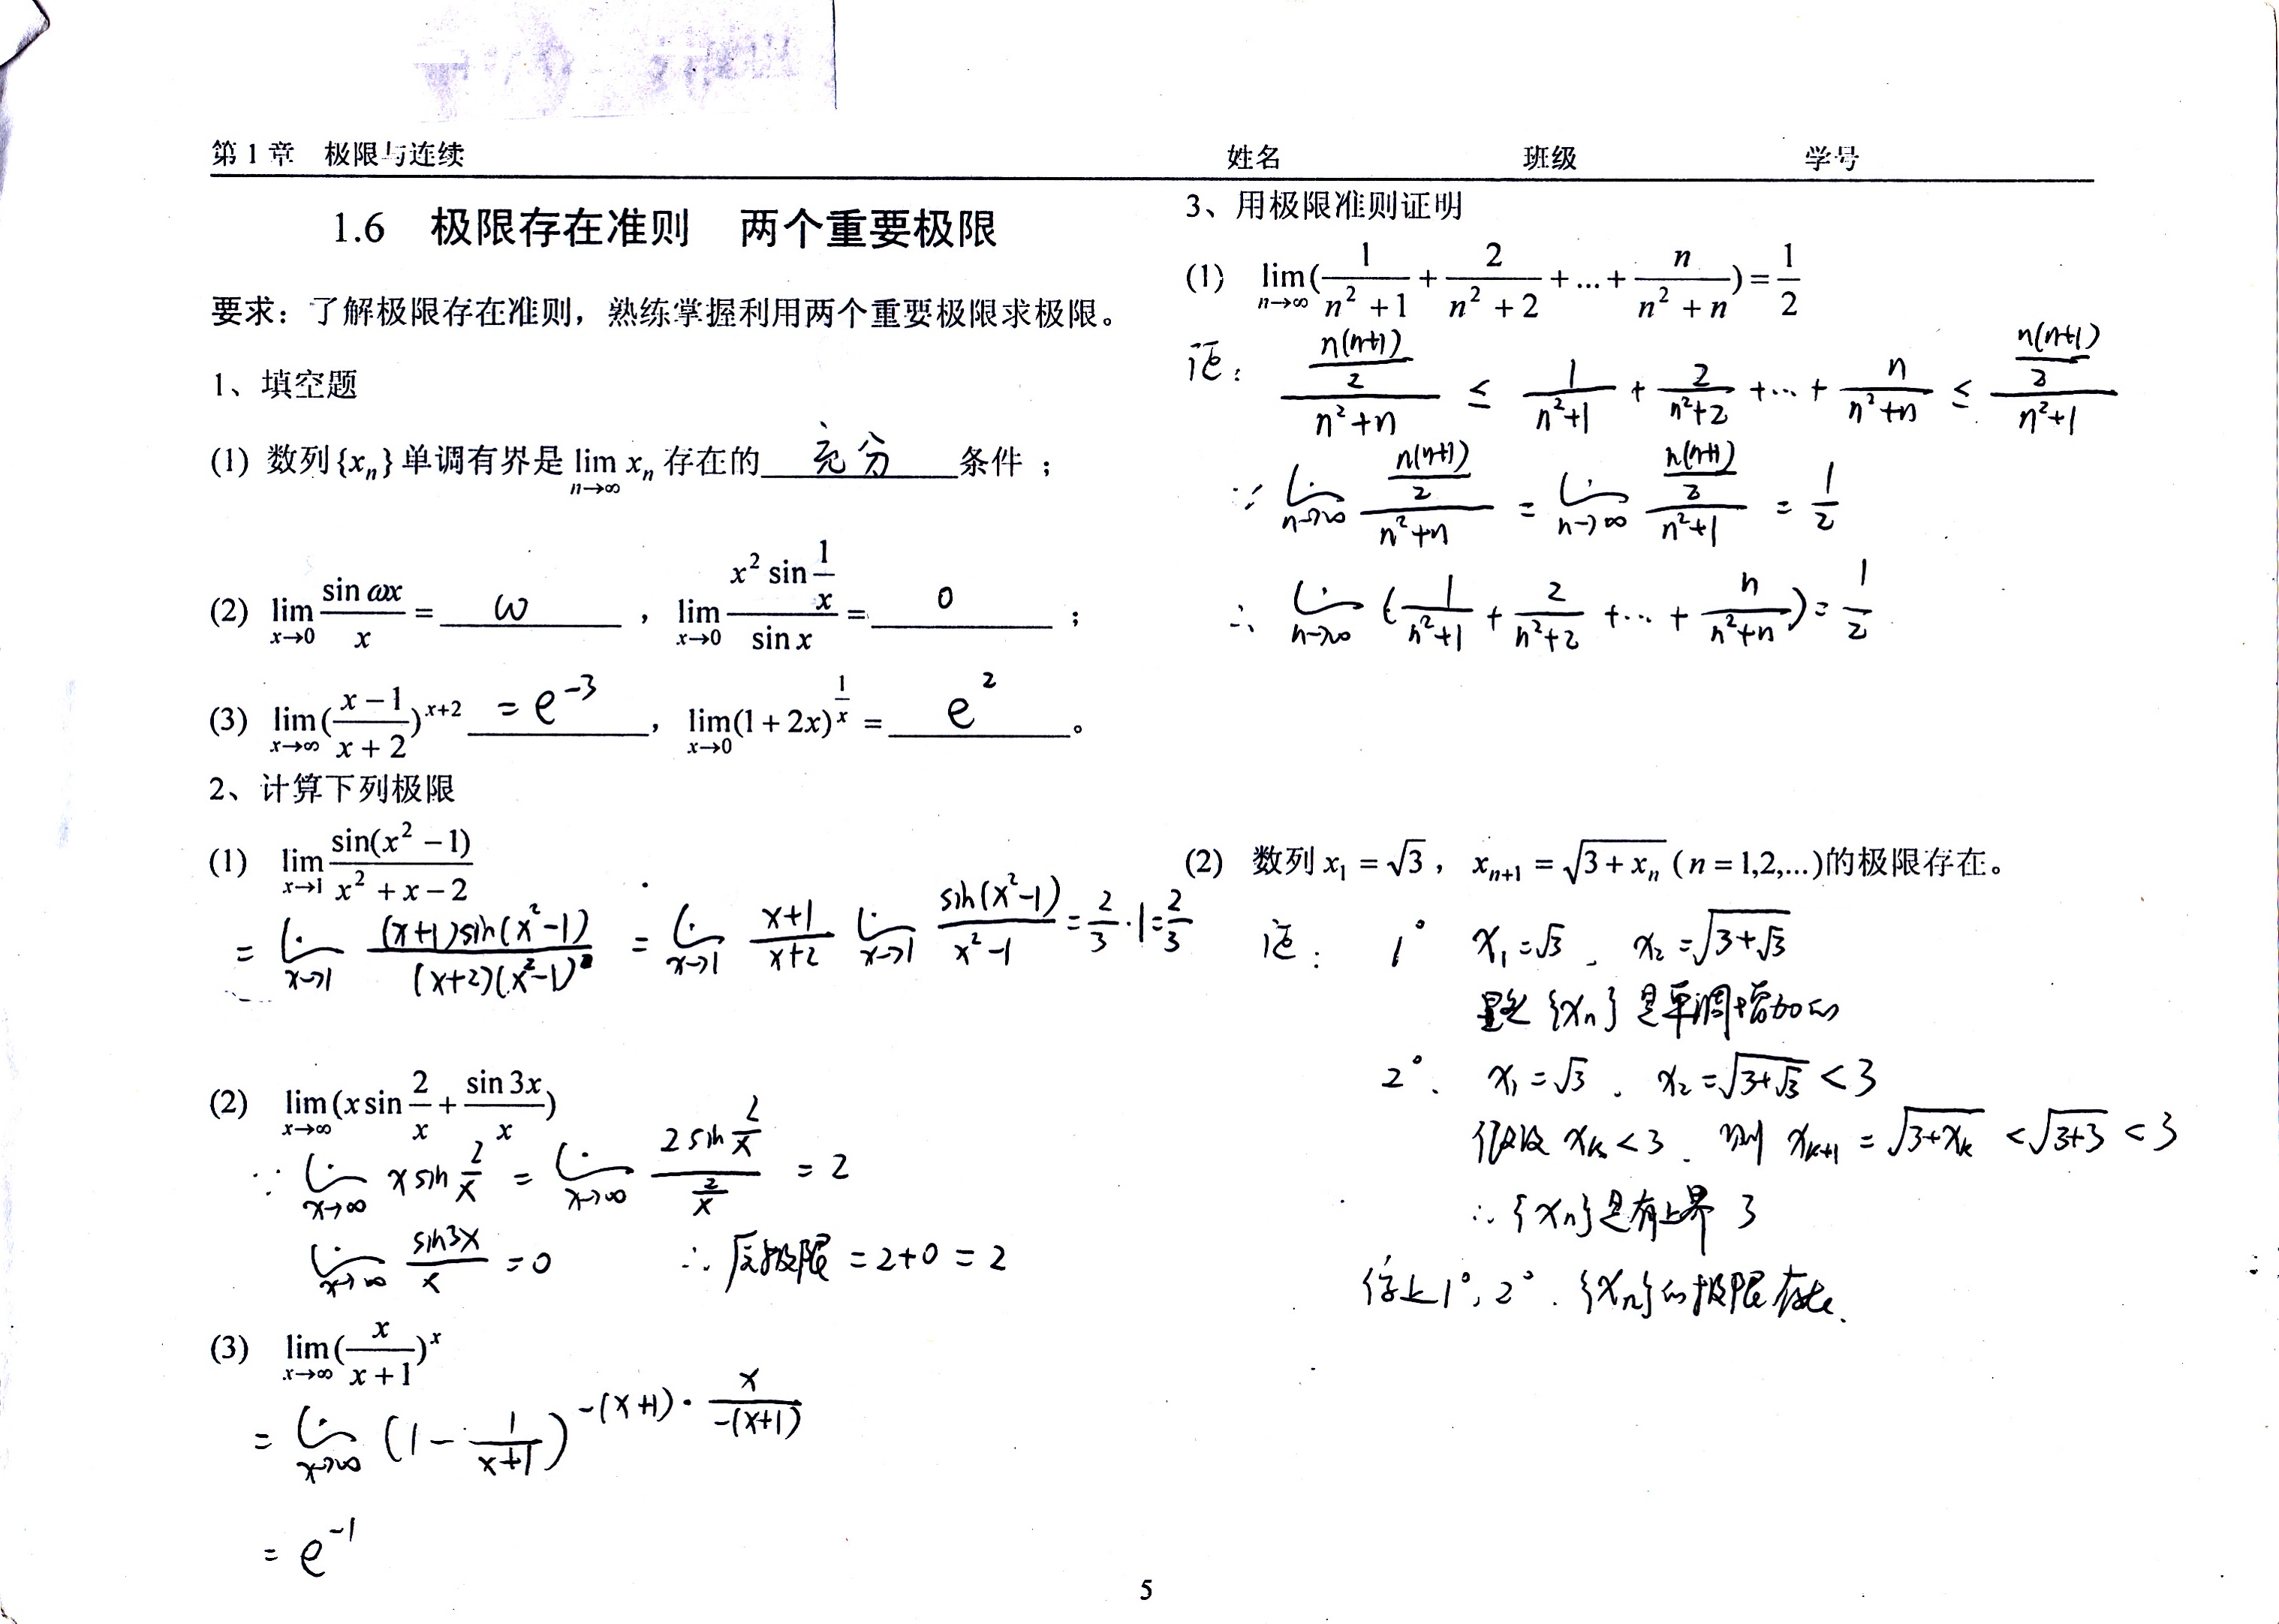 第1章 极限与连续
姓名 班级 学号
1.6 极限存在准则 两个重要极限
要求：了解极限存在准则，熟练掌握利用两个重要极限求极限。
1、填空题
(1) 数列{xₙ}单调有界是 lim_{n→∞} xₙ 存在的 充分 条件；
(2) lim_{x→0} (sin ωx)/x = ω ， lim_{x→0} (x² sin(1/x))/(sin x) = 0 ；
(3) lim_{x→∞} ((x-1)/(x+2))^{x+2} = e^{-3} ， lim_{x→0} (1+2x)^{1/x} = e² 。
2、计算下列极限
(1) lim_{x→1} sin(x²-1)/(x²+x-2)
= lim_{x→1} ((x+1)sin(x²-1))/((x+2)(x²-1)) = lim_{x→1} (x+1)/(x+2) lim_{x→1} sin(x²-1)/(x²-1) = 2/3·1 = 2/3
(2) lim_{x→∞} (x sin(2/x) + (sin 3x)/x)
∵ lim_{x→∞} x sin(2/x) = lim_{x→∞} (2 sin(2/x))/(2/x) = 2
lim_{x→∞} (sin3x)/x = 0 ∴ 原极限 = 2+0 = 2
(3) lim_{x→∞} (x/(x+1))^x
= lim_{x→∞} (1 - 1/(x+1))^{-(x+1)·x/(-(x+1))}
= e^{-1}
3、用极限准则证明
(1) lim_{n→∞} (1/(n²+1) + 2/(n²+2) + ... + n/(n²+n)) = 1/2
证： (n(n+1)/2)/(n²+n) ≤ 1/(n²+1) + 2/(n²+2) + ... + n/(n²+n) ≤ (n(n+1)/2)/(n²+1)
∵ lim_{n→∞} (n(n+1)/2)/(n²+n) = lim_{n→∞} (n(n+1)/2)/(n²+1) = 1/2
∴ lim_{n→∞} (1/(n²+1) + 2/(n²+2) + ... + n/(n²+n)) = 1/2
(2) 数列 x₁ = √3， xₙ₊₁ = √(3+xₙ) (n = 1,2,...)的极限存在。
证： 1° x₁ = √3 、 x₂ = √(3+√3)
显然 {xₙ} 是单调增加的
2°、 x₁ = √3 、 x₂ = √(3+√3) < 3
假设 xₖ < 3 、 则 xₖ₊₁ = √(3+xₖ) < √(3+3) < 3
∴ {xₙ}是有上界 3
综上 1°, 2° 、 {xₙ}的极限存在.
5